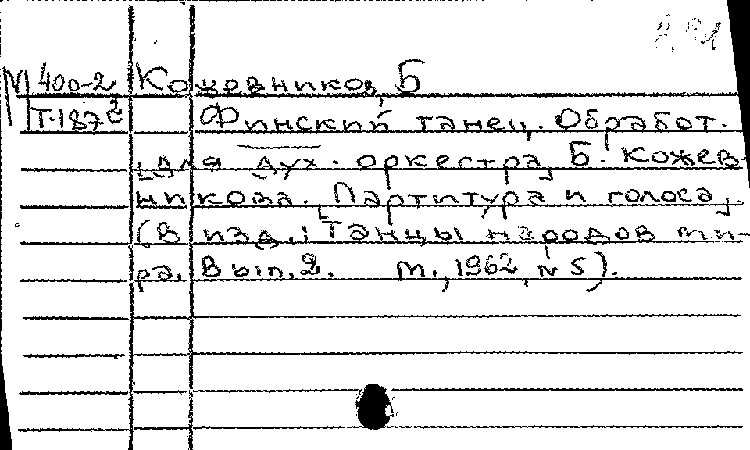 М 400-2 Кожевников, Б
Т-187² Финский танец. Обработ.
[для дух. оркестра] Б. Кожев-
никова. [Партитура и голоса]
(В изд.: Танцы народов ми-
ра. Вып. 2. М., 1962, № 5).